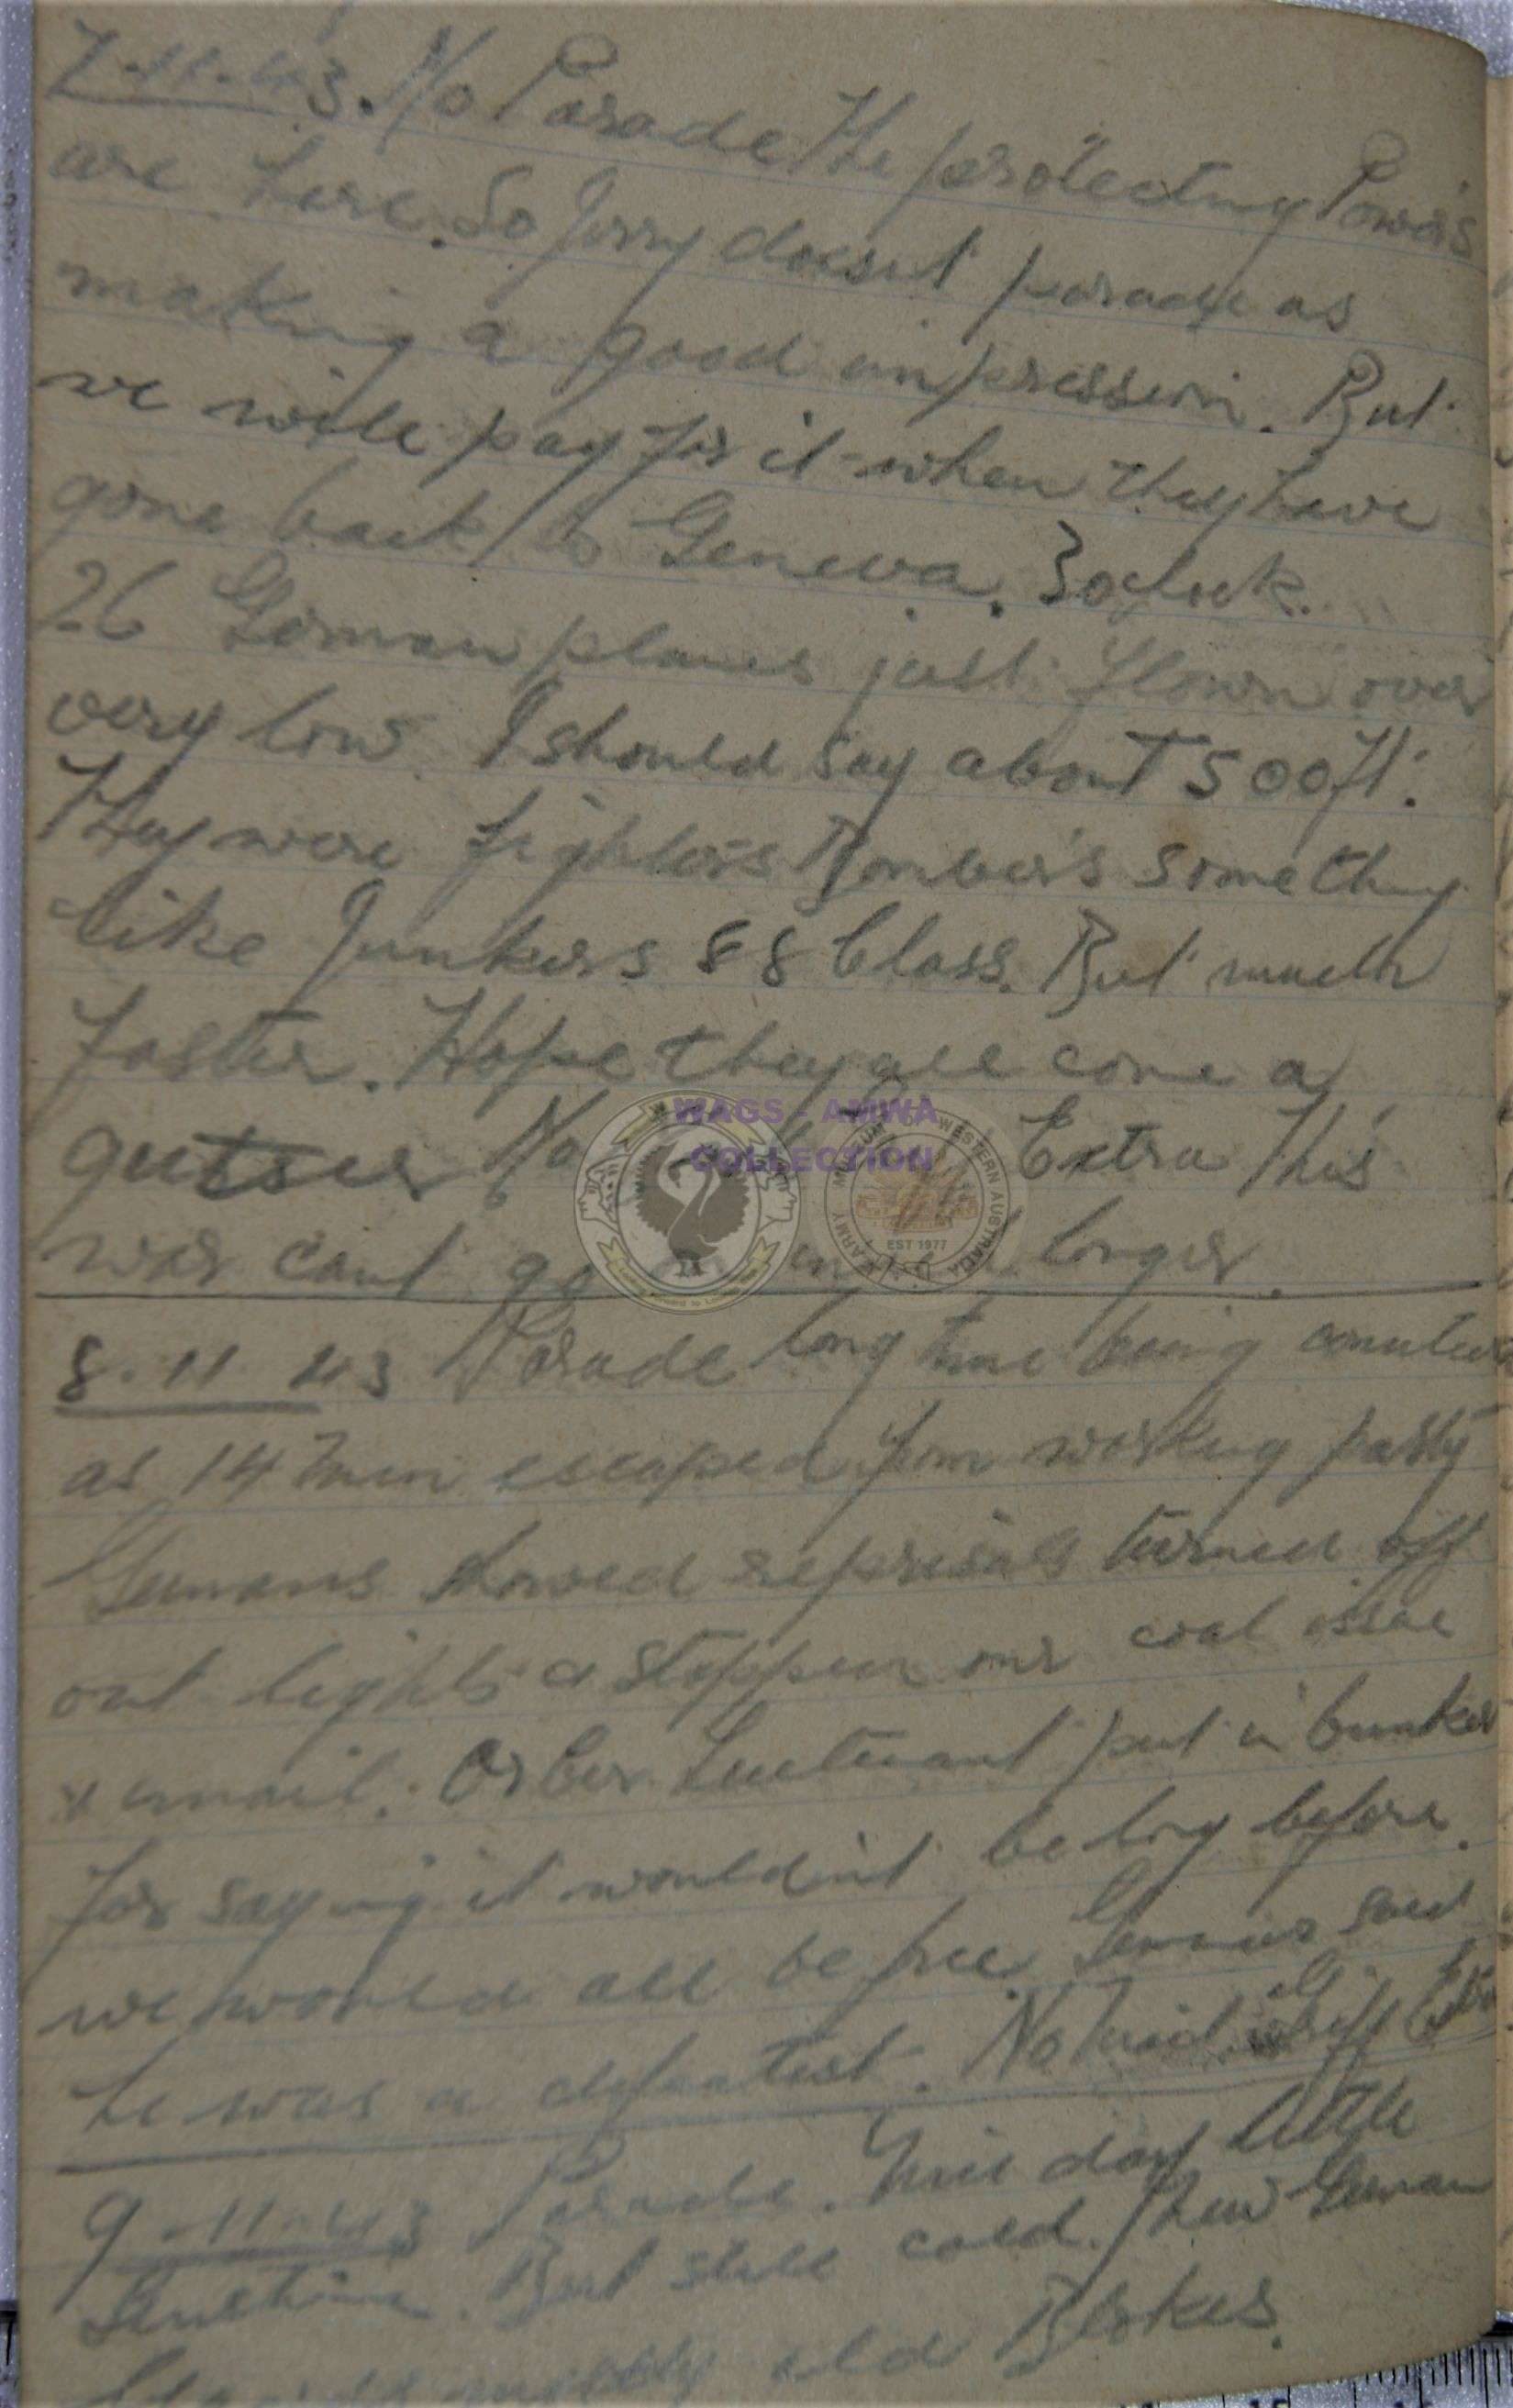 7-11-43. No Parade The protecting Power's
are here. So Jerry doesn't parade as
making a good impression. But
we will pay for it when they have
gone back to Geneva. 3 oclock.
26 German planes just flown over
very low. I should say about 500 ft.
They were fighters Bomber's something
like Junkers 88 Class. But much
faster. Hope they all come a
gutser No Extra This
war cant go on much longer.
8. 11 43 Parade long time being counted
as 14 men escaped from working party
Germans showed reprisals turned off
out lights & stopped our coal issue
& mail. Lieutenant put in bunker
for saying it wouldn't be long before
we would all be free. Germans said
he was a defeatist. No
9-11-43 Parade. Nice day little
Sunshine. But still cold. New German
mostly old Blokes.
WAGS - AMWA
COLLECTION
ARMY MUSEUM OF WESTERN AUSTRALIA
EST 1977